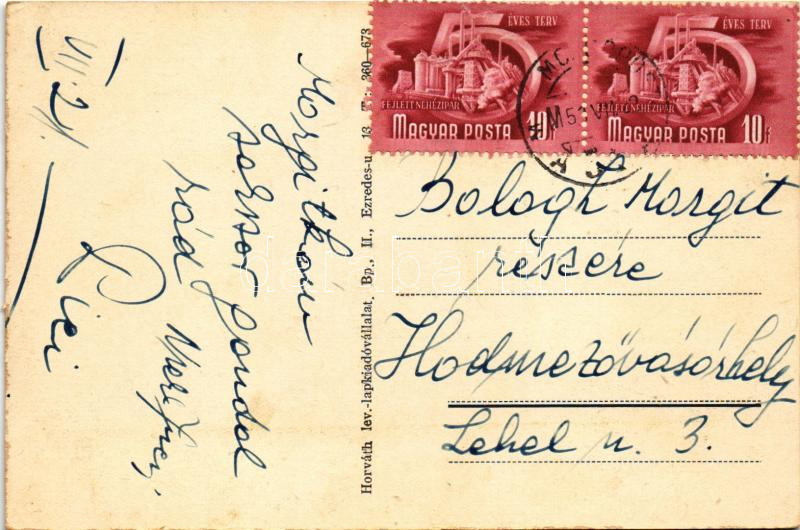 VII. 24.
Margitkám
sokszor gondol
rád
Pici
Horváth lev.-lapkiadóvállalat, Bp., II., Ezredes-u. 13. T.: 360—673
5 ÉVES TERV
FEJLETT NEHÉZIPAR
MAGYAR POSTA 10f
5 ÉVES TERV
FEJLETT NEHÉZIPAR
MAGYAR POSTA 10f
Balogh Margit
részére
Hodmezővásárhely
Lehel u. 3.
darabanth